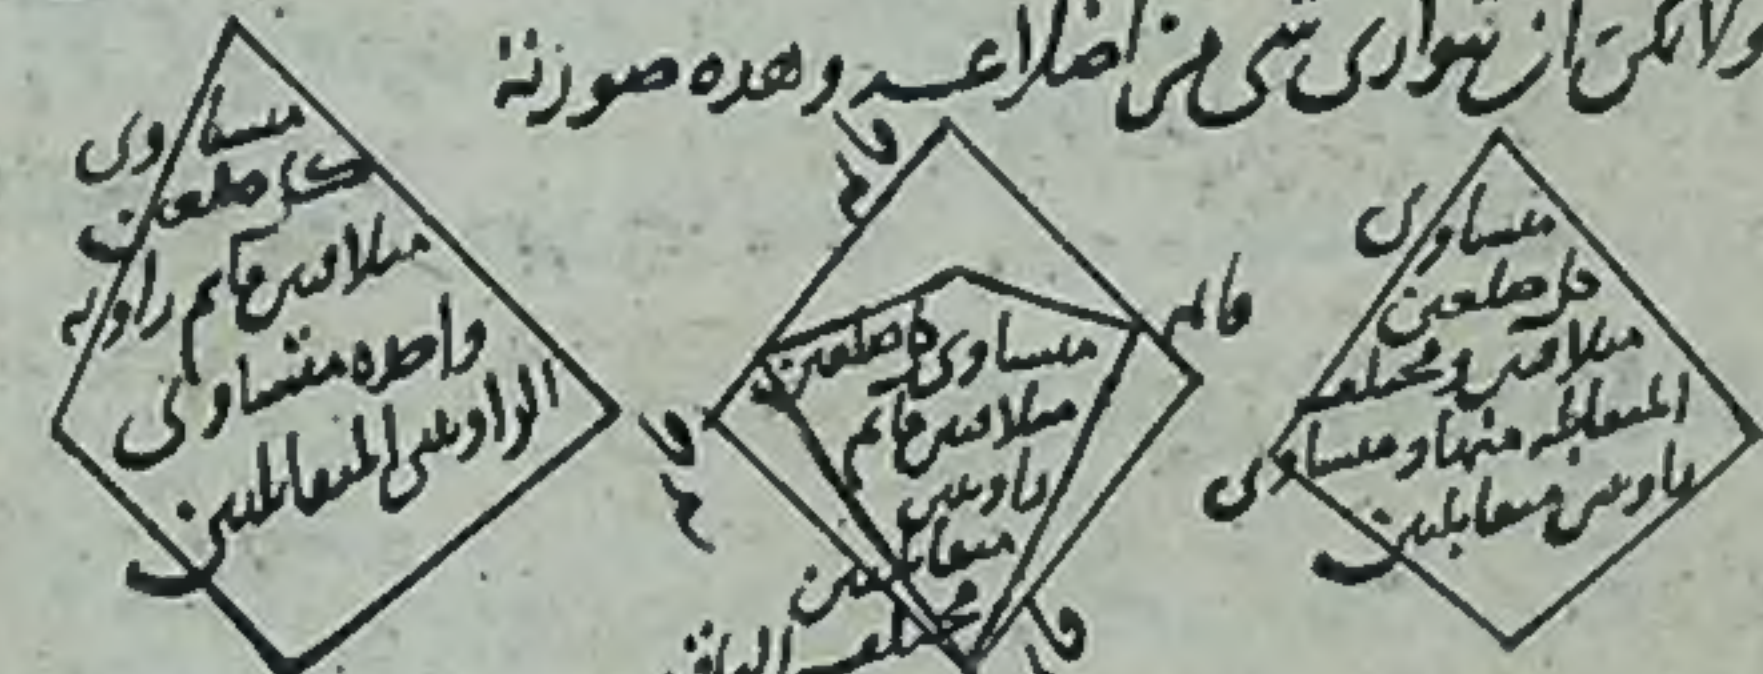 ولا يمكن ان يتوازى شي من اضلاعه وهذه صورته
متساوى
كل ضلعين
متلاقيين ومختلف
المتقابلة منها ومتساوى
زاويتين متقابلتين
قائم
قائم
متساوى كل ضلعين
متلاقيين قائم
زاويتين
متقابلتين
مختلف
قا
قا
متساوى
كل ضلعين
متلاقيين قائم زاوية
واحدة متساوى
الزاويتين المتقابلتين